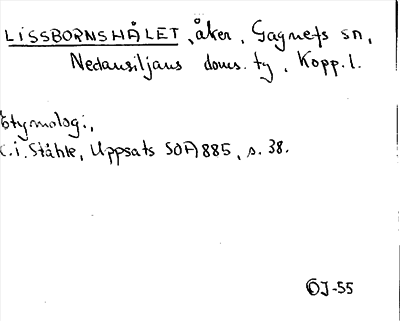 LISSBORNSHÅLET, åker, Gagnefs sn,
Nedansiljans doms. tg, Kopp. l.
Etymologi,
C.i. Ståhle, Uppsats SOA 885, s. 38.
ÖJ-55